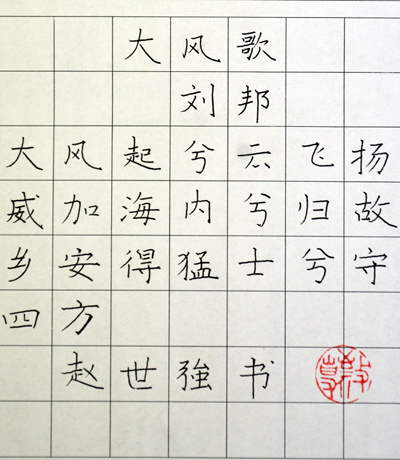 大风歌
刘邦
大风起兮云飞扬
威加海内兮归故
乡安得猛士兮守
四方
赵世強书